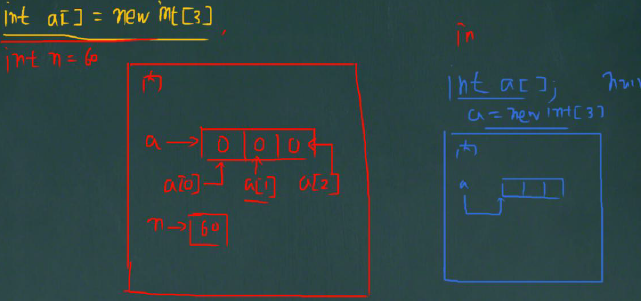 int a[] = new int[3]
int n = 60
a → 0 0 0
a[0] a[1] a[2]
n → 60
in
int a[];
a = new int[3]
a